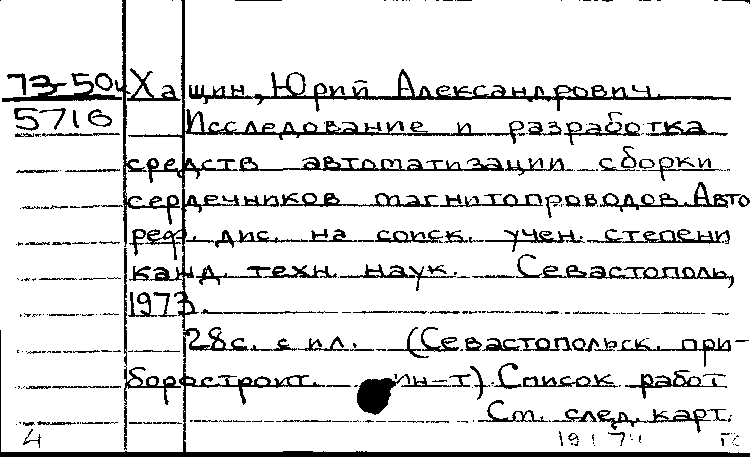 73-50
5716
Хащин, Юрий Александрович.
Исследование и разработка
средств автоматизации сборки
сердечников магнитопроводов. Авто
реф. дис. на соиск. учен. степени
канд. техн. наук. Севастополь,
1973.
28 с. с ил. (Севастопольск. при-
боростроит. ин-т). Список работ
См. след. карт.
4